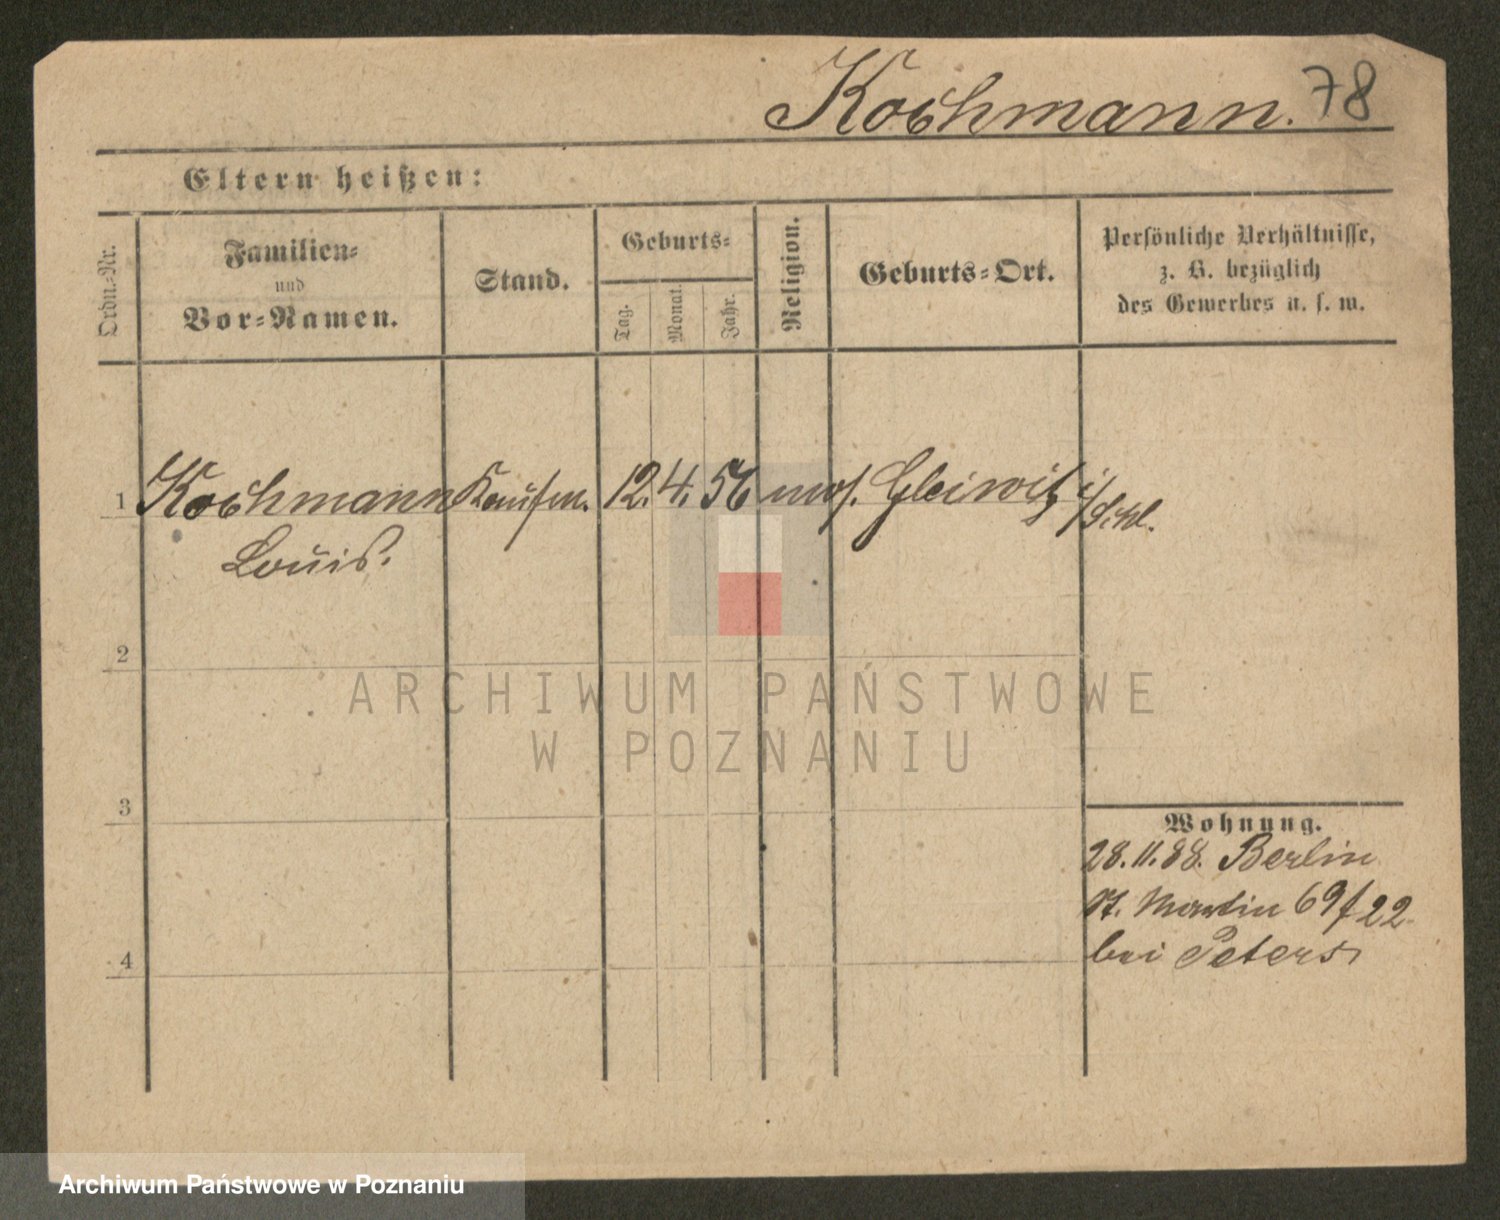 Kochmann. 78
Eltern heißen:
Ordn.-Nr.
Familien-
und
Vor-Namen.
Stand.
Geburts-
Tag.
Monat.
Jahr.
Religion.
Geburts-Ort.
Persönliche Verhältnisse,
z. B. bezüglich
des Gewerbes u. s. w.
1 Kochmann Kaufm. 12. 4. 56 mos. Gleiwitz i/Schl.
Louis.
2
3
4
Wohnung.
28. 11. 88. Berlin
St. Martin 69/ 22
bei Peters
ARCHIWUM PAŃSTWOWE
W POZNANIU
Archiwum Państwowe w Poznaniu